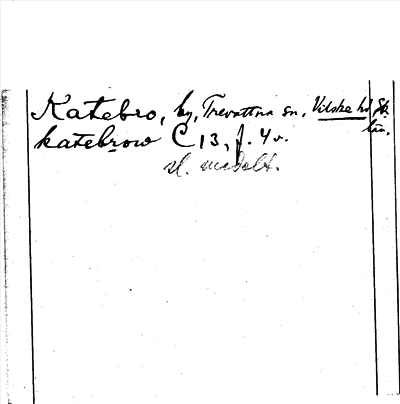 Katebro, by, Trevattna sn, Vilske hd, Sk. län.
katebrow C 13, f. 4 v.
sl. medelt.